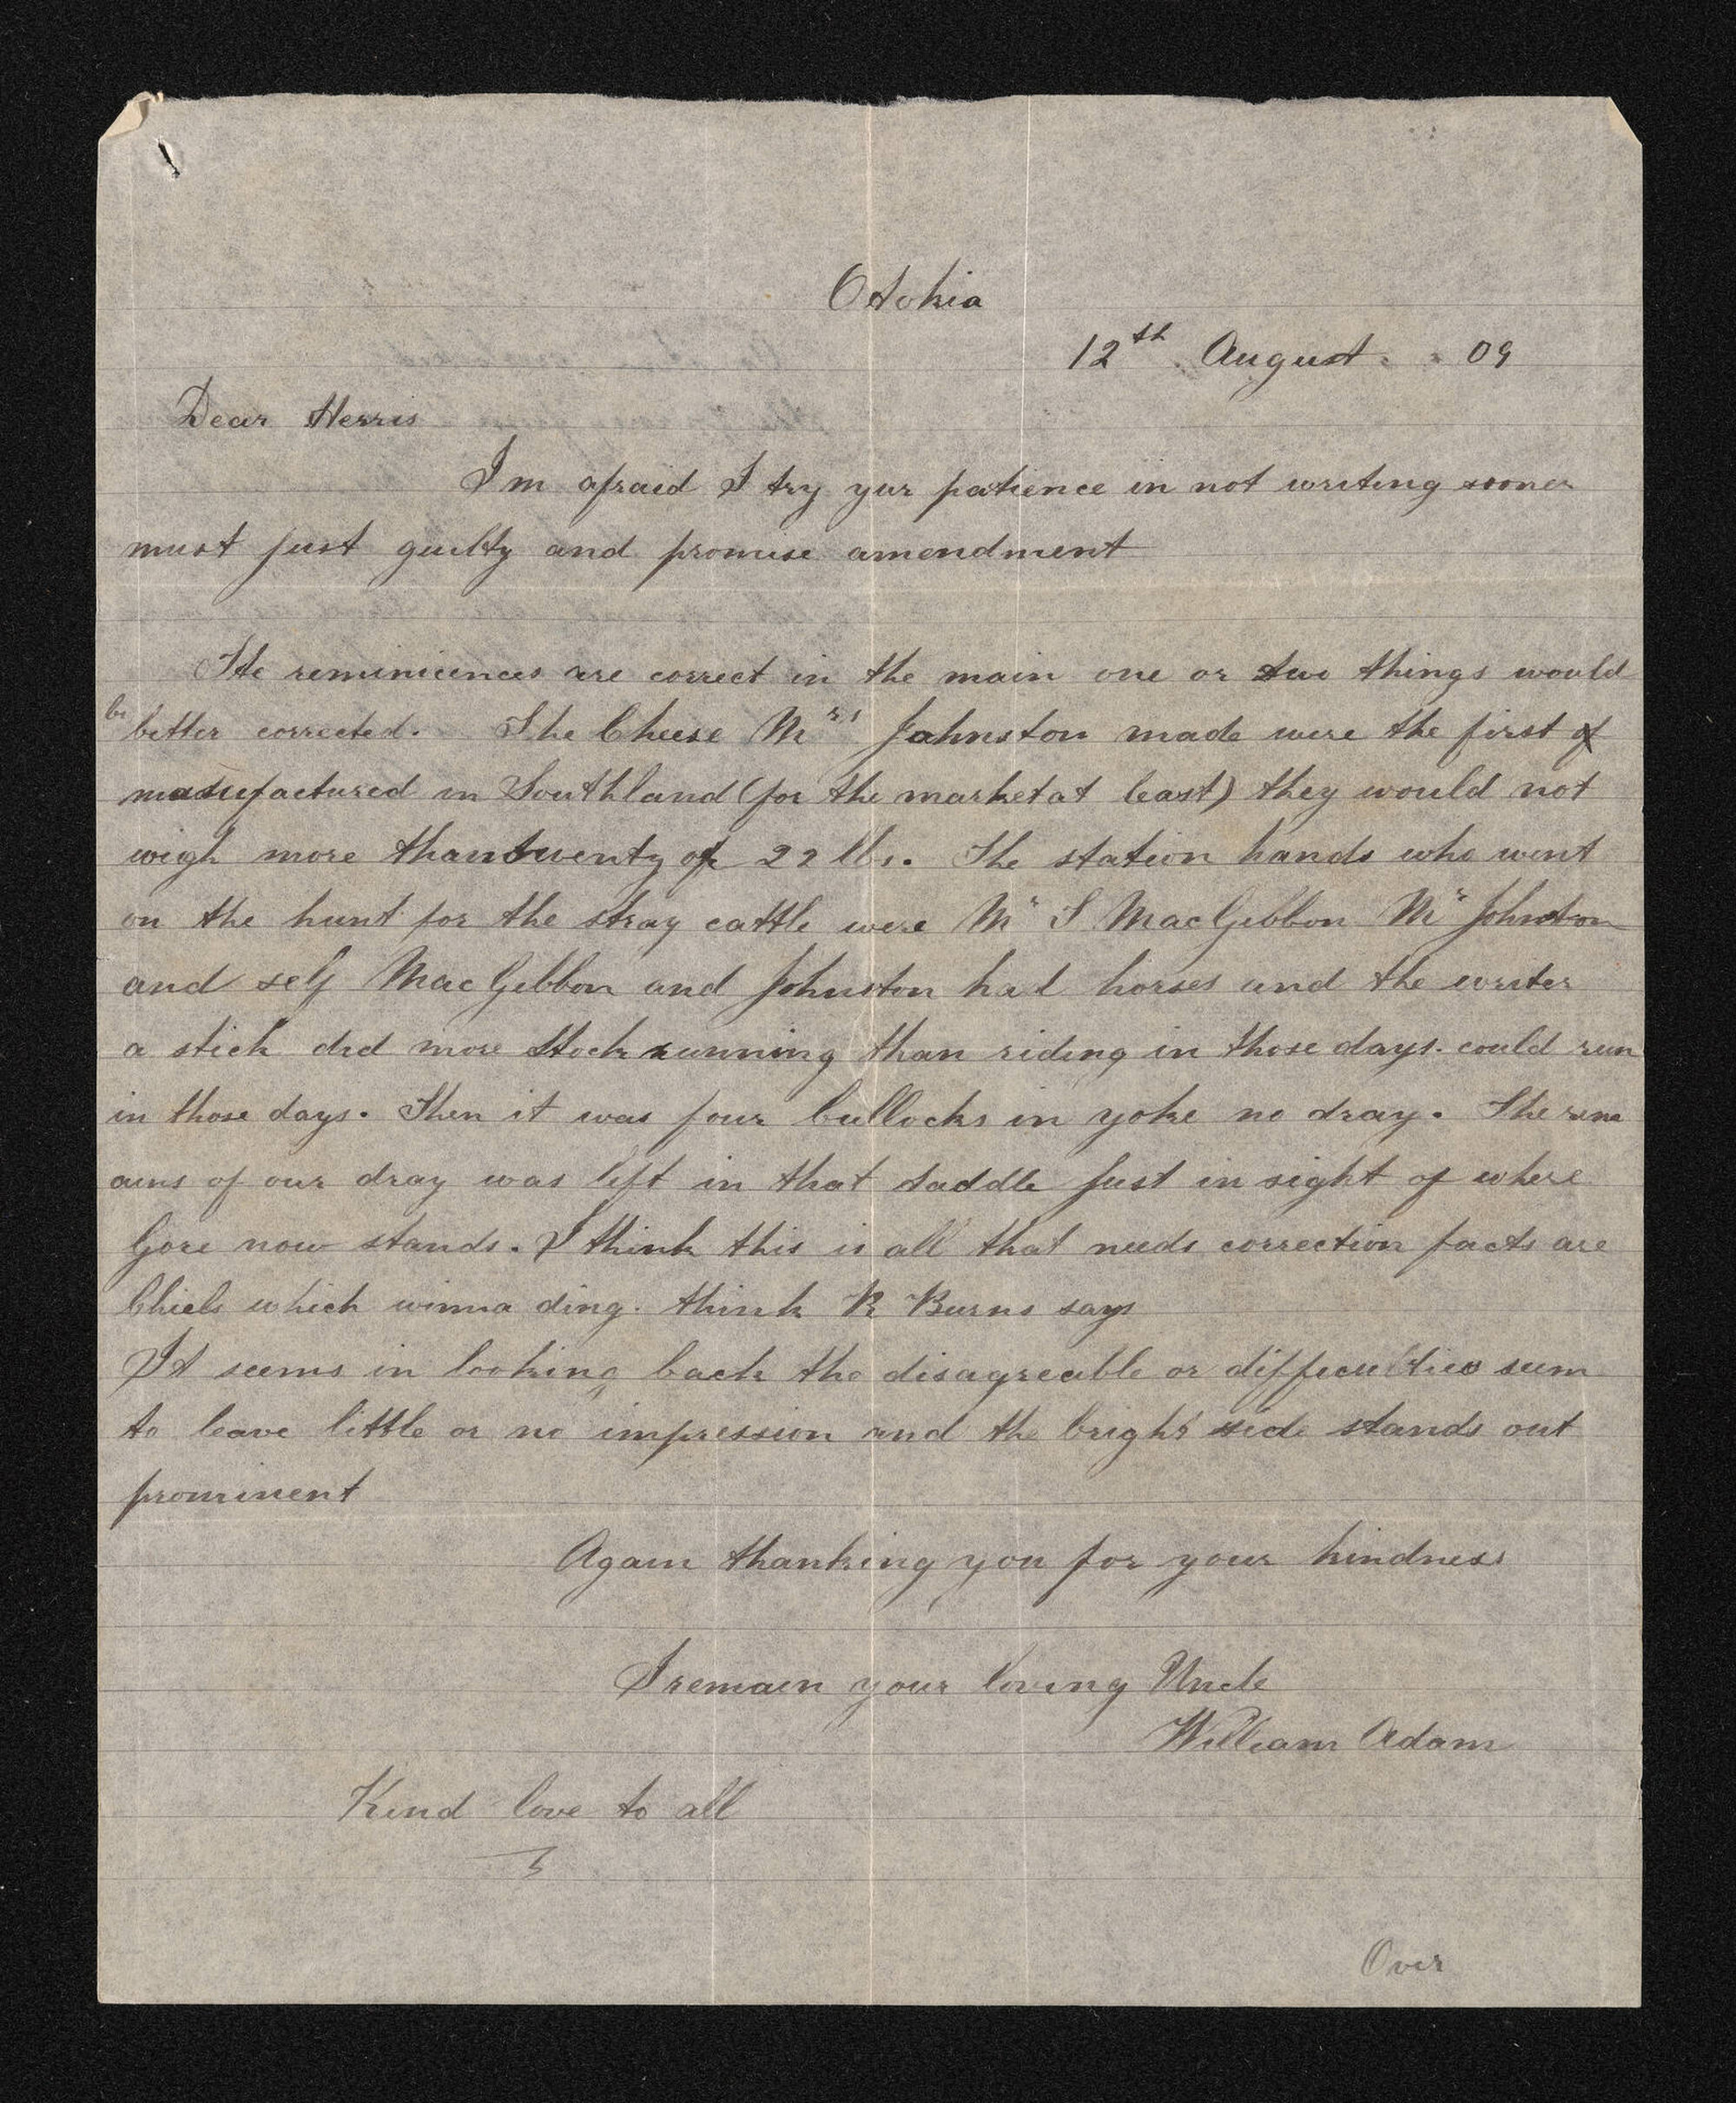 Otokia
12th August 09
Dear Herris
Im afraid I try yur patience in not writing sooner
must just guilty and promise amendment
The reminicences are correct in the main one or two things would
be better corrected. The Cheese Mrs Johnston made were the first of
manufactured in Southland (for the market at least) they would not
wigh more than twenty or 22 lbs. The station hands who went
on the hunt for the stray cattle were Mr T MacGibbon Mr Johnston
and self MacGibbon and Johnston had horses and the writer
a stick did more stock running than riding in those days. could run
in those days. Then it was four bullocks in yoke no dray. The rema
ains of our dray was left in that saddle just in sight of where
Gore now stands. I think this is all that needs correction facts are
Chiels which winna ding. think R Burns says
It seems in looking back the disagreeable or difficulties seem
to leave little or no impression and the bright side stands out
prominent
Again thanking you for your kindness
I remain your loving Uncle
William Adam
Kind love to all
Over